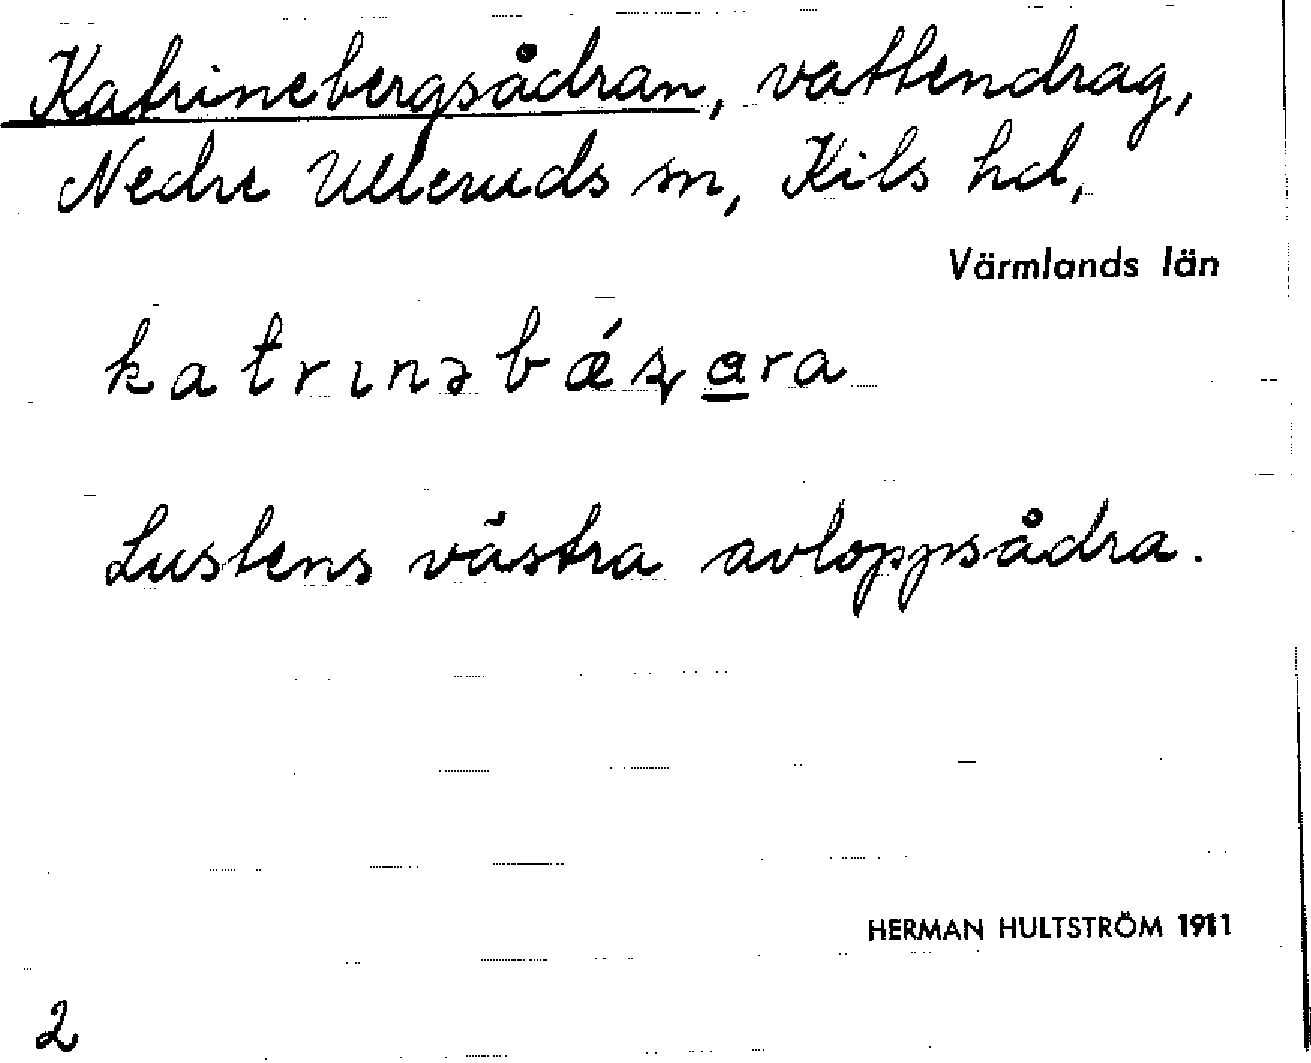 Katrinebergsådran, vattendrag,
Nedre Ulleruds sn, Kils hd,
Värmlands län
katrınəbǽʂara
Lustens västra avloppsådra.
HERMAN HULTSTRÖM 1911
2